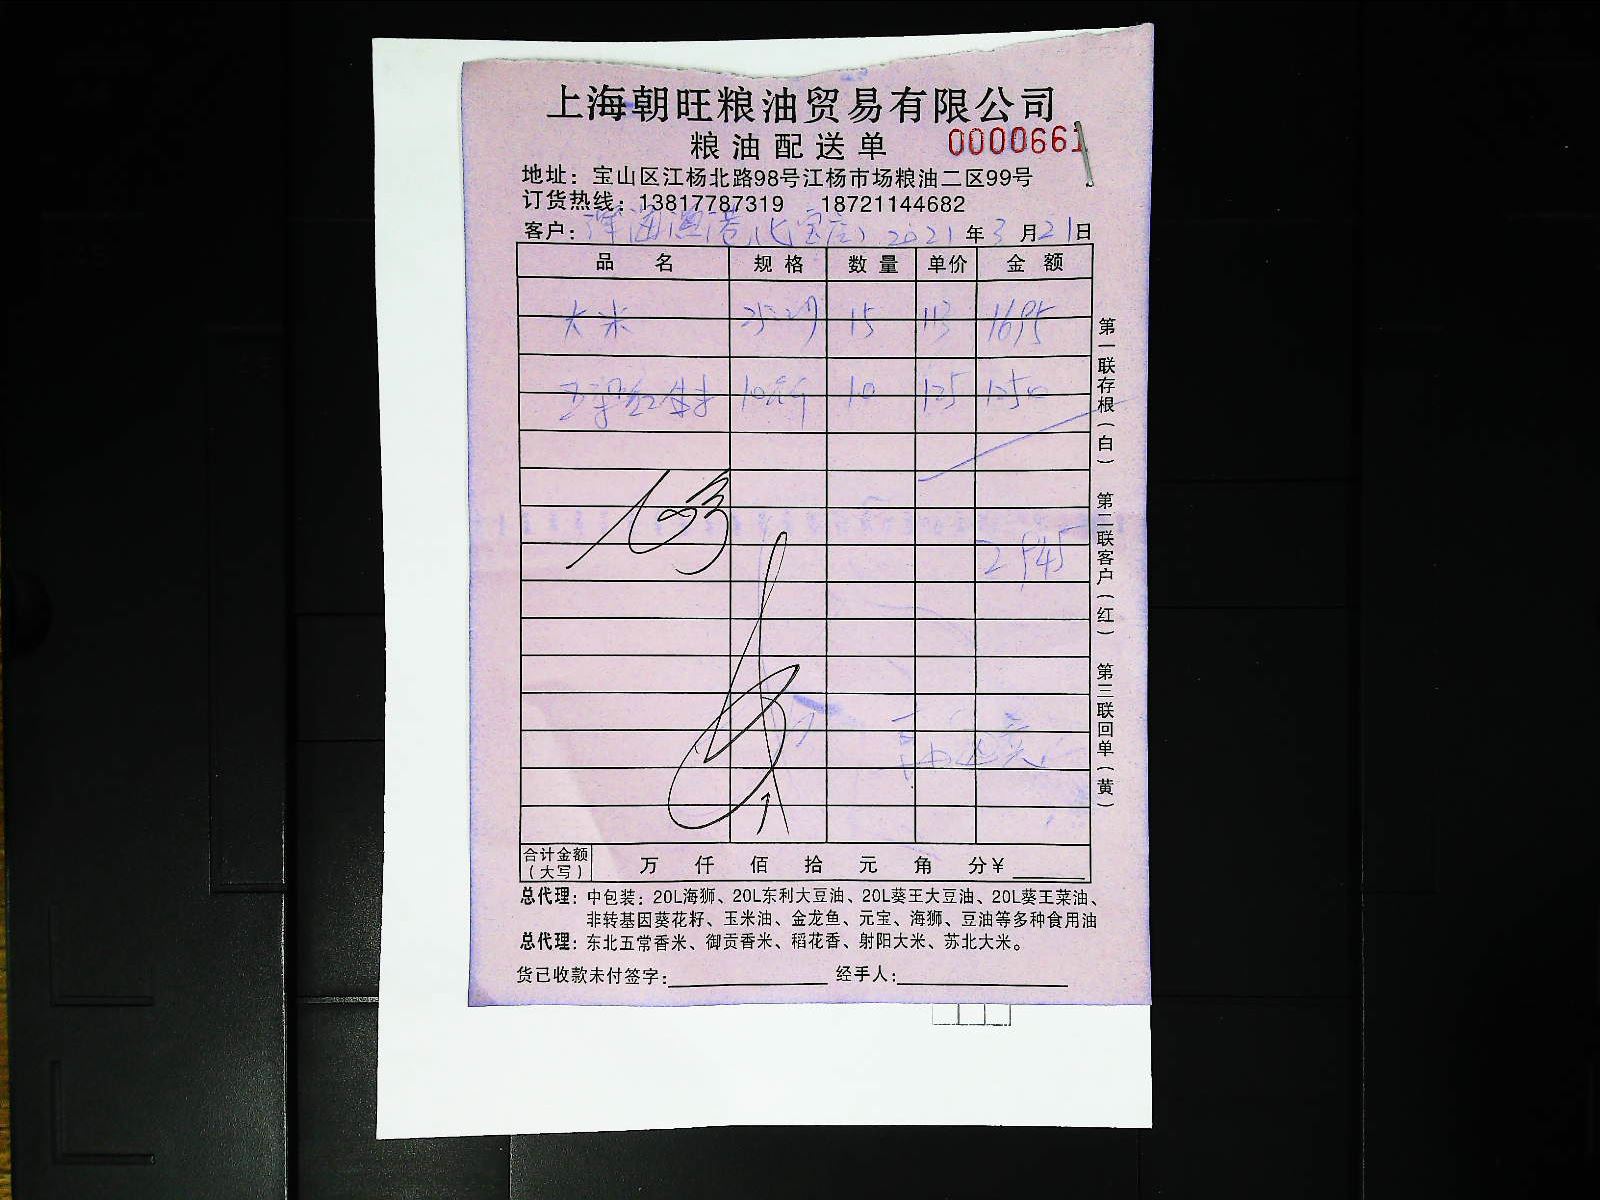 上海朝旺粮油贸易有限公司
粮油配送单 0000661
地址：宝山区江杨北路98号江杨市场粮油二区99号
订货热线：13817787319 18721144682
客户： 海渔港 2021年3月21日
品名 规格 数量 单价 金额
大米 15 113 1695
10 125 1250
2945
合计金额（大写） 万 仟 佰 拾 元 角 分￥
总代理：中包装：20L海狮、20L东利大豆油、20L葵王大豆油、20L葵王菜油、
非转基因葵花籽、玉米油、金龙鱼、元宝、海狮、豆油等多种食用油
总代理：东北五常香米、御贡香米、稻花香、射阳大米、苏北大米。
货已收款未付签字： 经手人：
第一联存根（白） 第二联客户（红） 第三联回单（黄）